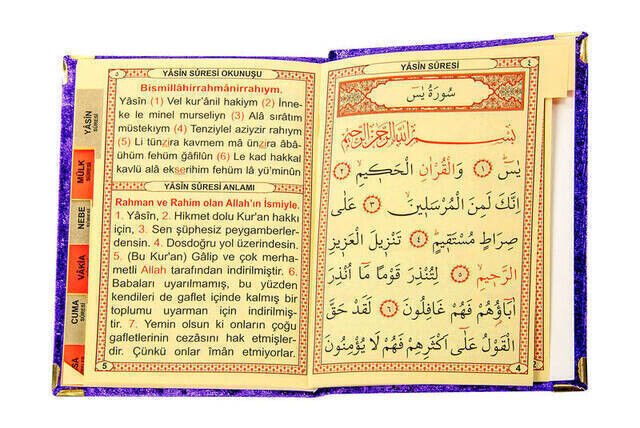 ٥
YÂSİN SÛRESİ OKUNUŞU
Bismillâhirrahmânirrahıym.
Yâsîn (1) Vel kur'ânil hakiym (2) İnne-
ke le minel murseliyn (3) Alâ sırâtım
müstekıym (4) Tenziylel aziyzir rahıym
(5) Li tünzira kavmem mâ ünzira âbâ-
ühüm fehüm ğâfilûn (6) Le kad hakkal
kavlü alâ ekserihim fehüm lâ yü'minûn
YÂSİN SÛRESİ ANLAMI
Rahman ve Rahim olan Allah'ın İsmiyle.
1. Yâsin, 2. Hikmet dolu Kur'an hakkı
için, 3. Sen şüphesiz peygamberler-
densin. 4. Dosdoğru yol üzerindesin.
5. (Bu Kur'an) Gâlip ve çok merha-
metli Allah tarafından indirilmiştir. 6.
Babaları uyarılmamış, bu yüzden
kendileri de gaflet içinde kalmış bir
toplumu uyarman için indirilmiş-
tir. 7. Yemin olsun ki onların çoğu
gafletlerinin cezasını hak etmişler-
dir. Çünkü onlar îman etmiyorlar.
5
YÂSİN SÛRESİ
MÜLK SÛRESİ
NEBE SÛRESİ
VÂKIA SÛRESİ
CUMA SÛRESİ
YÂSİN SÛRESİ
٤
سُورَةُ يٰسٓ
بِسْمِ اللّٰهِ الرَّحْمٰنِ الرَّحِيمِ
يٰسٓ ﴿١﴾ وَالْقُرْاٰنِ الْحَكِيمِۙ ﴿٢﴾
اِنَّكَ لَمِنَ الْمُرْسَلِينَۙ ﴿٣﴾ عَلٰى
صِرَاطٍ مُسْتَقِيمٍۜ ﴿٤﴾ تَنْزِيلَ الْعَزِيزِ
الرَّحِيمِۙ ﴿٥﴾ لِتُنْذِرَ قَوْمًا مَٓا اُنْذِرَ
اٰبَٓاؤُ۬هُمْ فَهُمْ غَافِلُونَ ﴿٦﴾ لَقَدْ حَقَّ
الْقَوْلُ عَلٰٓى اَكْثَرِهِمْ فَهُمْ لَا يُؤْمِنُونَ
4
2